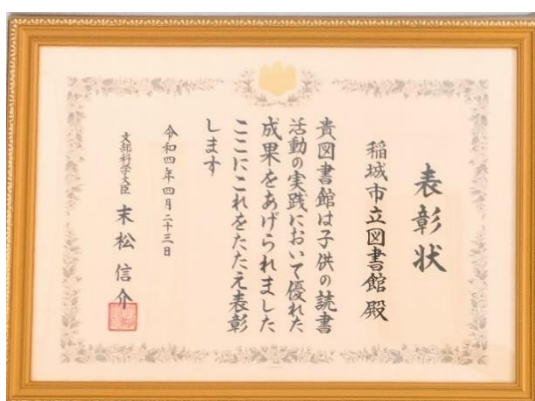 表彰状
稲城市立図書館殿
貴図書館は子供の読書
活動の実践において優れた
成果をあげられました
ここにこれをたたえ表彰
します
令和四年四月二十三日
文部科学大臣 末松信介